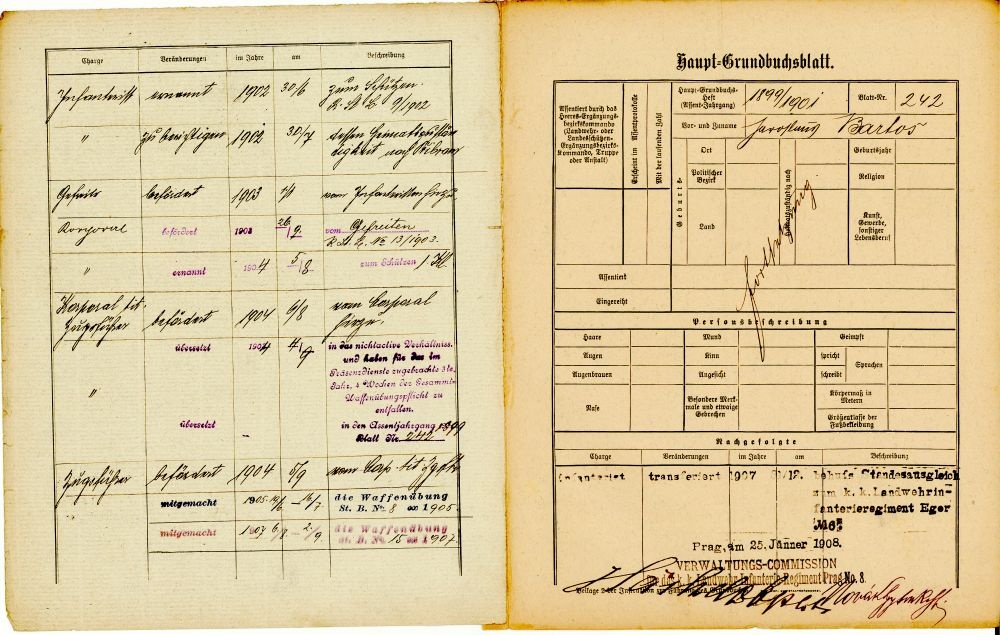 Charge Veränderungen im Jahre am Beschreibung
Infanterist ernannt 1902 30/6 zum Schützen
9/1902
" 1902 30/7
nach
Gefreite befördert 1903 vom Infanteristen
Korporal befördert 1903 26/9. vom Gefreiten
No 13/1903.
" ernannt 1904 5/8 zum Schützen 1 Kl
Korporal tit. Zugsführer befördert 1904 6/8 vom Corporal
übersetzt 1904 4/9 in das nichtactive Verhältniss.
und haben für das im
Präsenzdienste zugebrachte 3te
Jahr, 4 Wochen der Gesammt-
Waffenübungspflicht zu
entfallen.
" übersetzt in den Assentjahrgang 1899
Blatt Nr. 242
Zugsführer befördert 1904 5/9 vom
" mitgemacht 1905 die Waffenübung
St. B. No. 8 ex 1905.
mitgemacht 1907 die Waffenübung
St. B. No. 15 ex 1907.
Haupt-Grundbuchsblatt.
Assentiert durch das
Heeres-Ergänzungs-
bezirkskommando
(Landwehr- oder
Landesschützen-
Ergänzungsbezirks-
Kommando, Truppe
oder Anstalt)
Erscheint im Assentprotokolle
Mit der laufenden Zahl
Haupt-Grundbuchs-
Heft
(Assent-Jahrgang)
1899/1901
Blatt-Nr. 242
Vor- und Zuname Jaroslaus Bartos
Geburts-
Ort
Politischer
Bezirk
Land
Heimatzuständig nach
Geburtsjahr
Religion
Kunst,
Gewerbe,
sonstiger
Lebensberuf
Fortsetzung
Assentiert
Eingereiht
Personsbeschreibung
Haare Mund Geimpft
Augen Kinn spricht Sprachen
Augenbrauen Angesicht schreibt
Nase Besondere Merk-
male und etwaige
Gebrechen
Körpermaß in
Metern
Größenklasse der
Fußbekleidung
Nachgefolgte
Charge Veränderungen im Jahre am Beschreibung
Infanterist transferiert 1907 31/12. behufs Standesausgleich
zum k. k. Landwehrin-
fanterieregiment Eger
No 6.
Prag, am 25. Jänner 1908.
VERWALTUNGS-COMMISSION
des k. k. Landwehr-Infanterie-Regiment Prag No. 8.